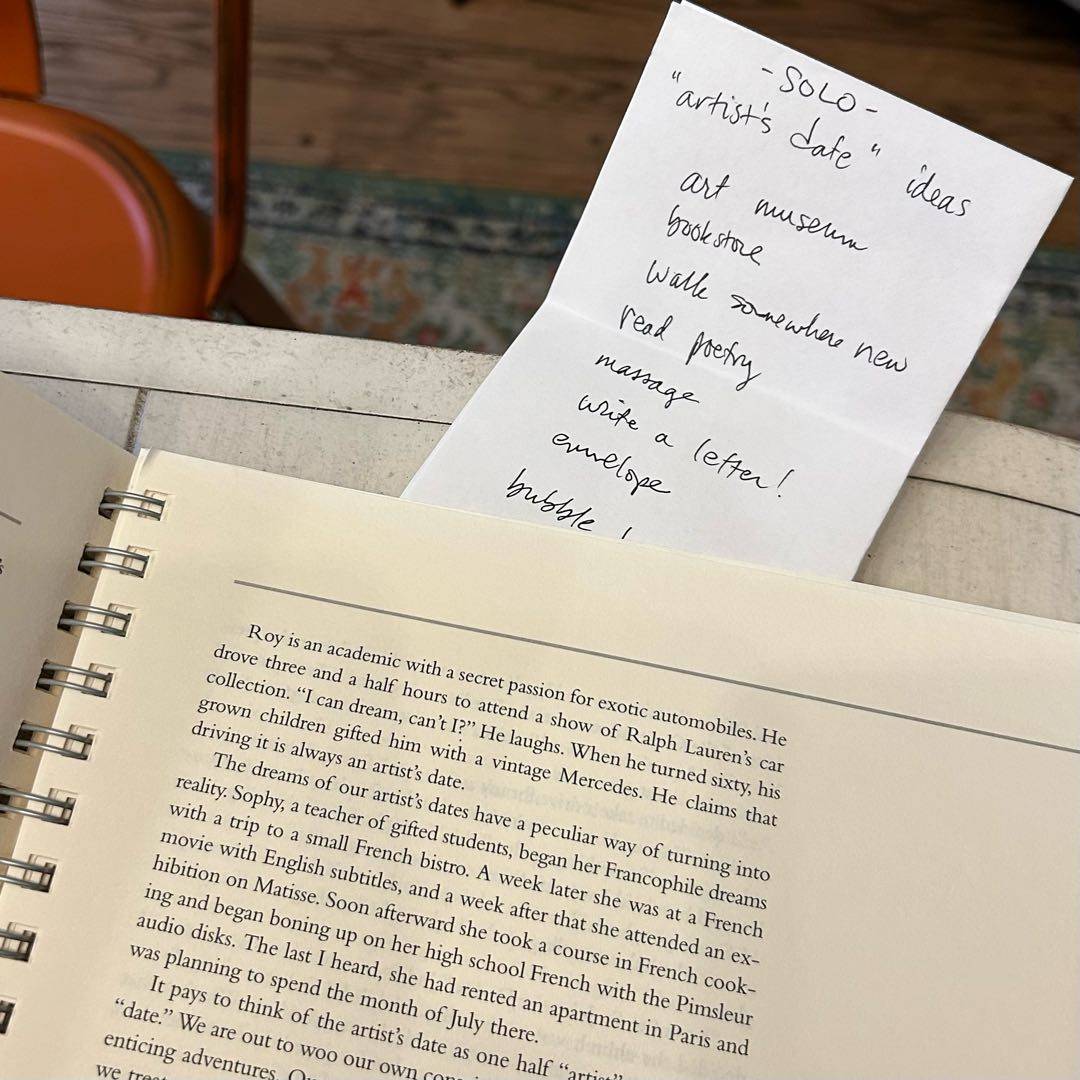 - SOLO -
"artist's date" ideas
art museum
bookstore
walk somewhere new
read poetry
massage
write a letter!
envelope
bubble
Roy is an academic with a secret passion for exotic automobiles. He
drove three and a half hours to attend a show of Ralph Lauren's car
collection. "I can dream, can't I?" He laughs. When he turned sixty, his
grown children gifted him with a vintage Mercedes. He claims that
driving it is always an artist's date.
The dreams of our artist's dates have a peculiar way of turning into
reality. Sophy, a teacher of gifted students, began her Francophile dreams
with a trip to a small French bistro. A week later she was at a French
movie with English subtitles, and a week after that she attended an ex-
hibition on Matisse. Soon afterward she took a course in French cook-
ing and began boning up on her high school French with the Pimsleur
audio disks. The last I heard, she had rented an apartment in Paris and
was planning to spend the month of July there.
It pays to think of the artist's date as one half "artist"
"date." We are out to woo our own
enticing adventures.
we